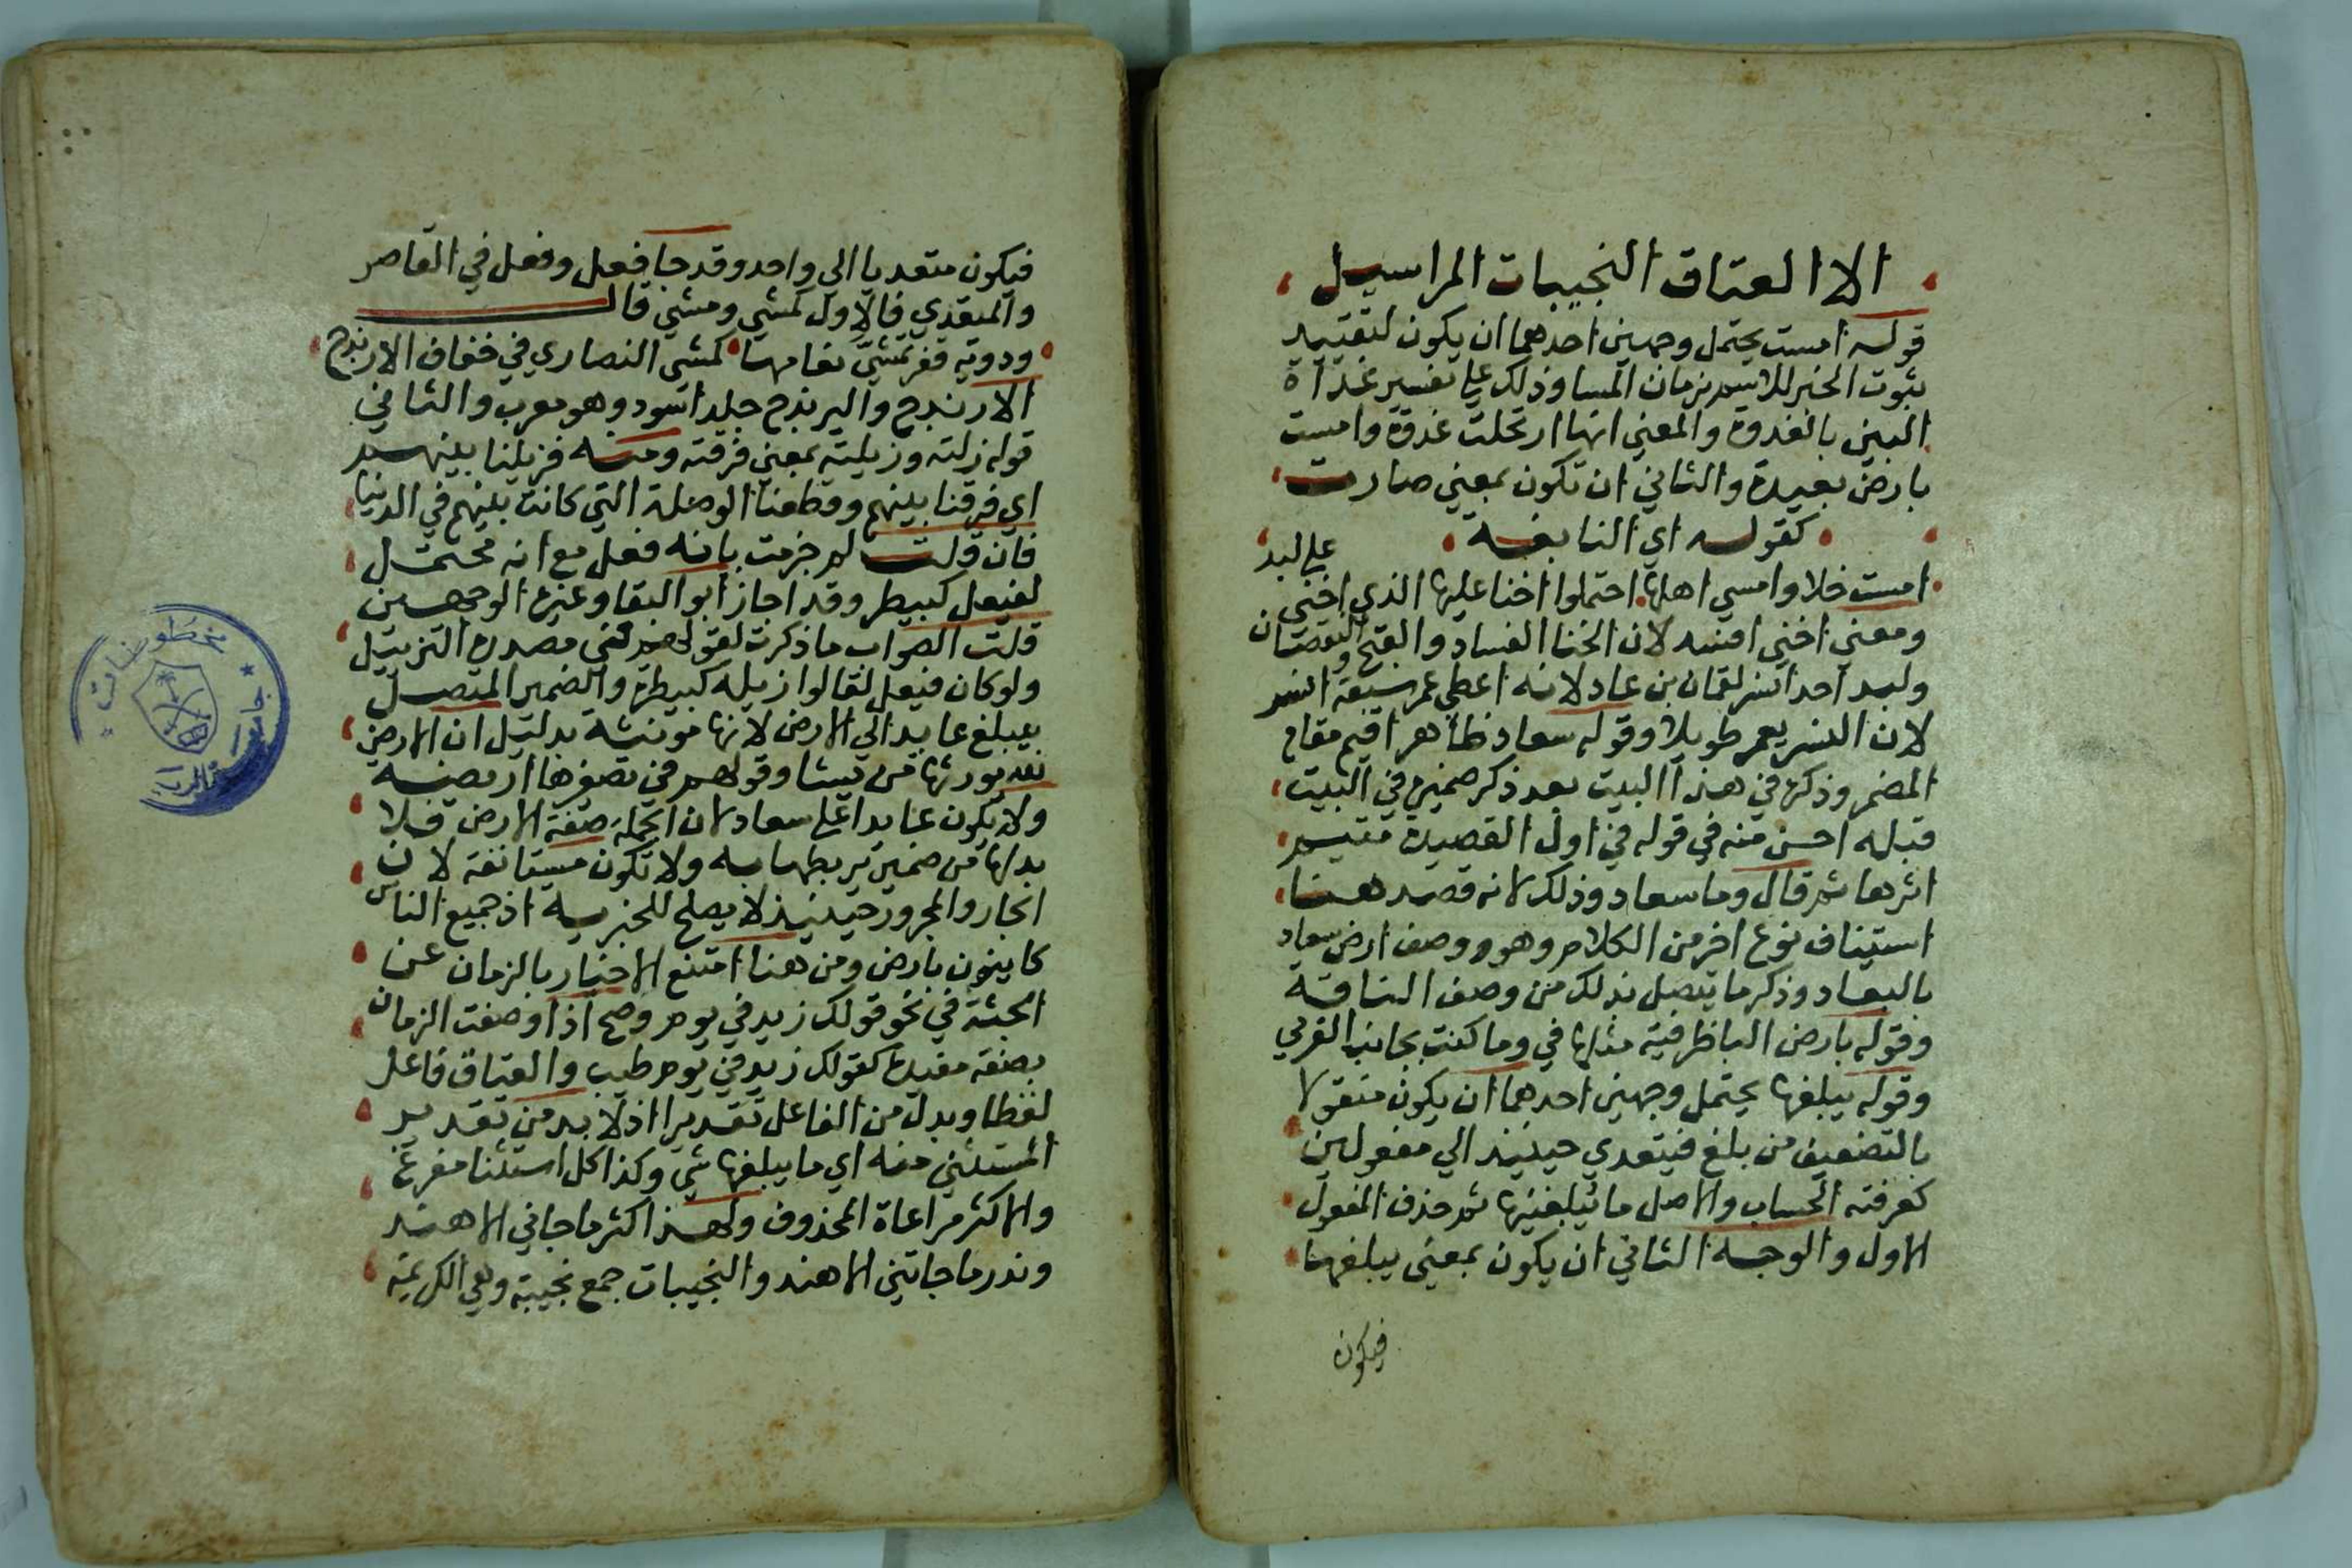 الا العتاق النجيبات المراسيل
قوله امست يحتمل وجهين احدهما ان يكون لتقييد
ثبوت الخبر للاسم بزمان المسا وذلك علي تفسير غداة
البين بالغدوة والمعني انها ارتحلت غدوة وامست
بارض بعيدة والثاني ان تكون بمعني صارت
كقوله اي النابغه
امست خلا وامسي اهلها احتملوا اخنا عليها الذي اخني علي لبد
ومعني اخني افسد لان الخنا الفساد والقبح والنقصان
ولبد احد انسر لقمان بن عاد لانه اعطي عمر سبعة انسر
لان النسر يعمر طويلا وقوله سعاد ظاهر اقيم مقام
المضمر وذكره في هذا البيت بعد ذكر ضميره في البيت
قبله احسن منه في قوله في اول القصيدة متيم
اثرها ثم قال وما سعاد وذلك لانه قصد هنا
استيناف نوع اخر من الكلام وهو وصف ارض سعاد
بالبعاد وذكر ما يتصل بذلك من وصف الناقة
وقوله بارض الباظرفية مثلها في وما كنت بجانب الغربي
وقوله يبلغها يحتمل وجهين احدهما ان يكون منقولا
بالتضعيف من بلغ فيتعدي حينيذ الي مفعولين
كعرفته الحساب والاصل ما يبلغنيها ثم حذف المفعول
الاول والوجه الثاني ان يكون بمعني يبلغها
فيكون
فيكون متعديا الي واحد وقد جا فعل وفعل في القاصر
والمتعدي فالاول كمشي ومشي قال
ودوية قفر تمشي نعامها كمشي النصاري في خفاف الارندج
الارندج واليرندج جلد اسود وهو معرب والثاني
قوله زلته وزيلته بمعني فرقته ومنه فزيلنا بينهم
اي فرقنا بينهم وقطعنا الوصلة التي كانت بينهم في الدنيا
فان قلت لم جزمت بانه فعل مع انه محتمل
لفيعل كبيطر وقد اجاز ابو البقا وغيره الوجهين
قلت الصواب ما ذكرت لقولهم في مصدره التزييل
ولو كان فيعل لقالوا زيلة كبيطرة والضمير المتصل
بيبلغ عايد الي الارض لانها مونثة بدليل ان الارض
لله يورثها من يشا وقولهم في تصغيرها اريضه
ولا يكون عايدا علي سعاد لان الجملة صفة الارض فلا
بد لها من ضمير يربطها به ولا تكون مستانفة لان
الجار والمجرور حينيذ لا يصلح للخبريه اذ جميع الناس
كاينون بارض ومن هنا امتنع الاخبار بالزمان عن
الجثة في نحو قولك زيد في يوم وصح اذا وصفت الزمان
بصفة مفيدة كقولك زيد في يوم طيب والعتاق فاعل
لفظا وبدل من الفاعل تقديرا اذ لا بد من تقدير
المستثني منه اي ما يبلغها شي وكذا كل استثنا مفرغ
والاكثر مراعاة المحذوف ولهذا كثر ما جاني الا هند
وندر ما جاتني الا هند والنجيبات جمع نجيبة وهي الكريمة
جامعة
مخطوطات